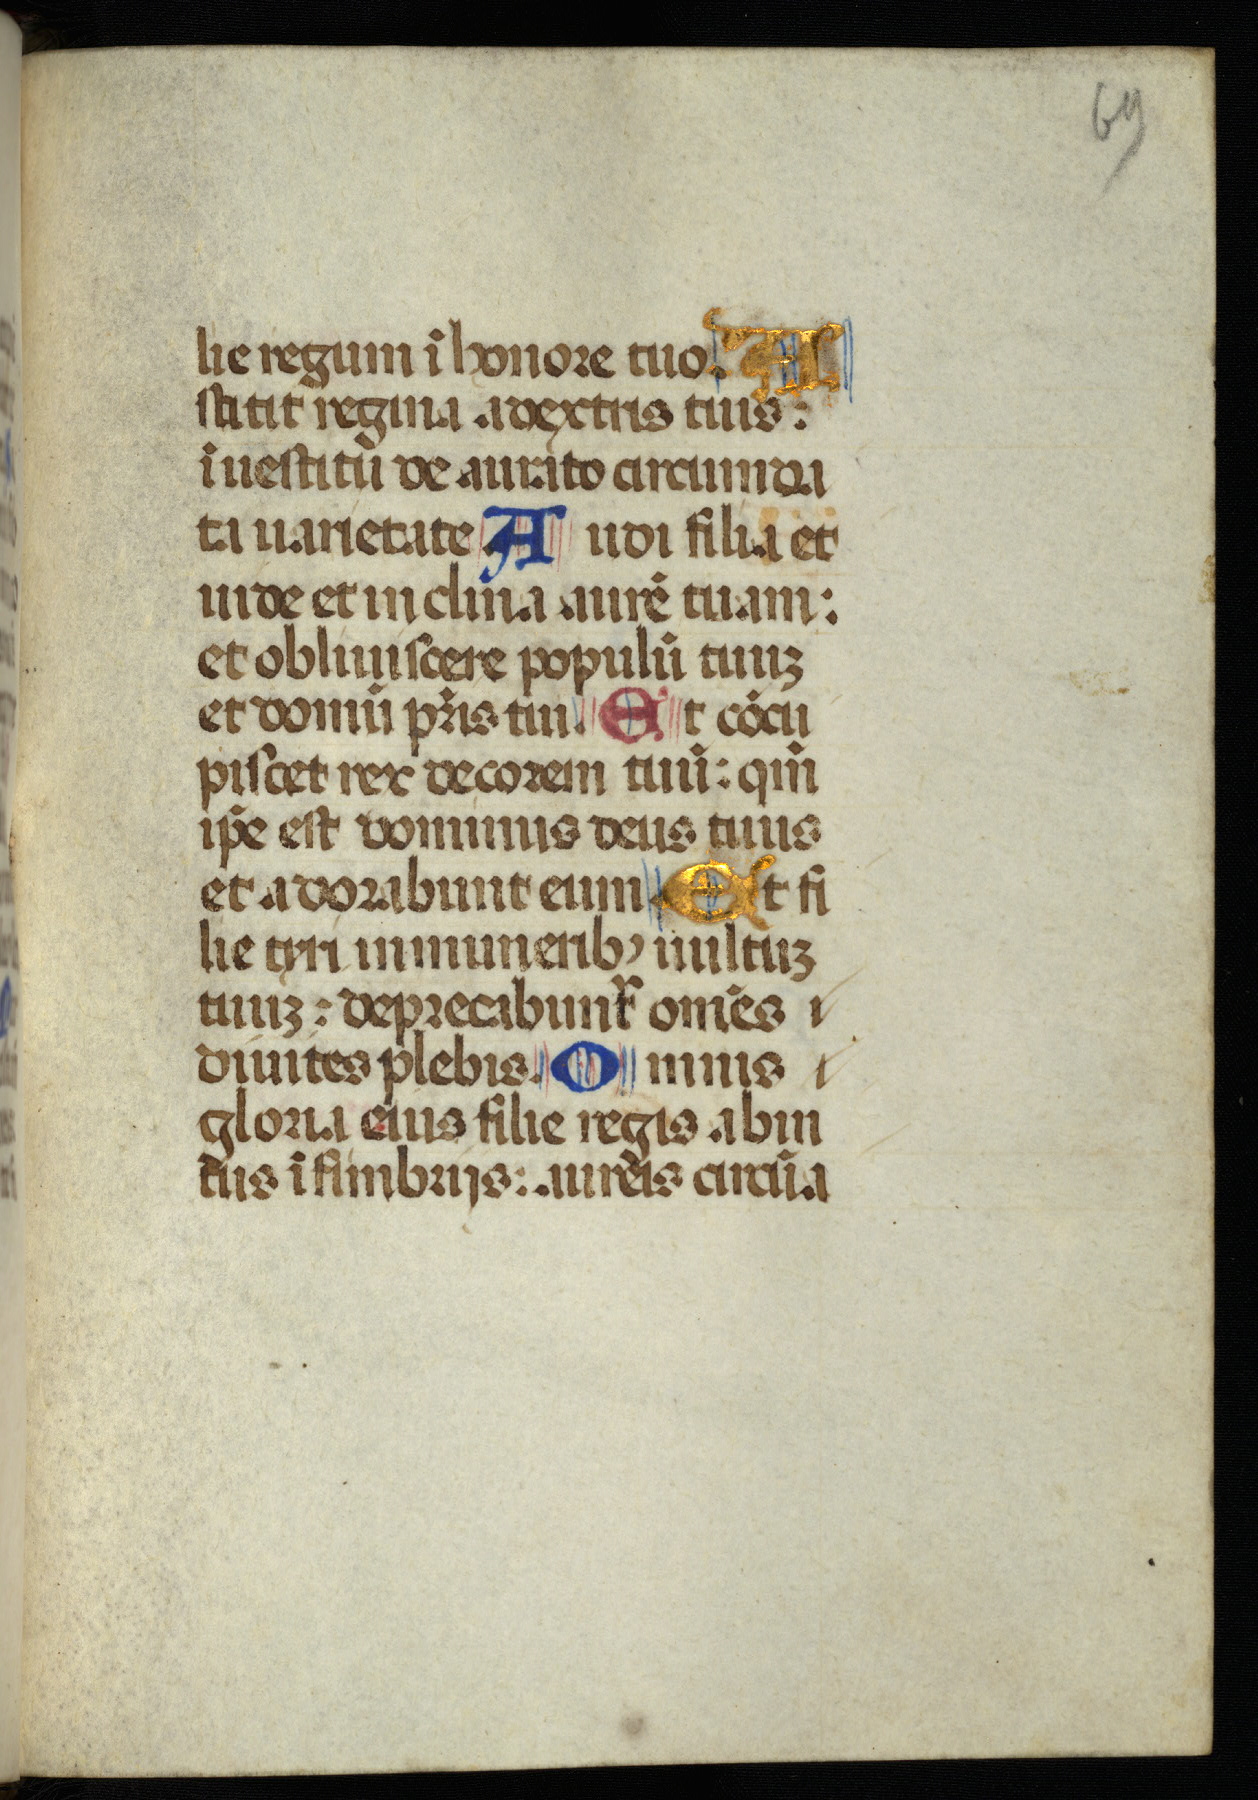 69
lie regum ī honore tuo. A
stitit regina adextris tuis:
ī uestitū de aurato circumda
ta uarietate A udi filia et
uide et in clina aurē tuam:
et obliuiscere populū tuuꝫ
et domū pr̄is tui. E t cōcu
piscet rex decorem tuū: qm̄
ip̄e est dominus deus tuus
et adorabunt eum. E t fi
lie tyri in munerib; uultuꝫ
tuuꝫ: deprecabunt᷑ om̄es i
diuites plebis. O mnis i
gloria eius filie regis abin
tus ī fimbrijs: aureis circūa